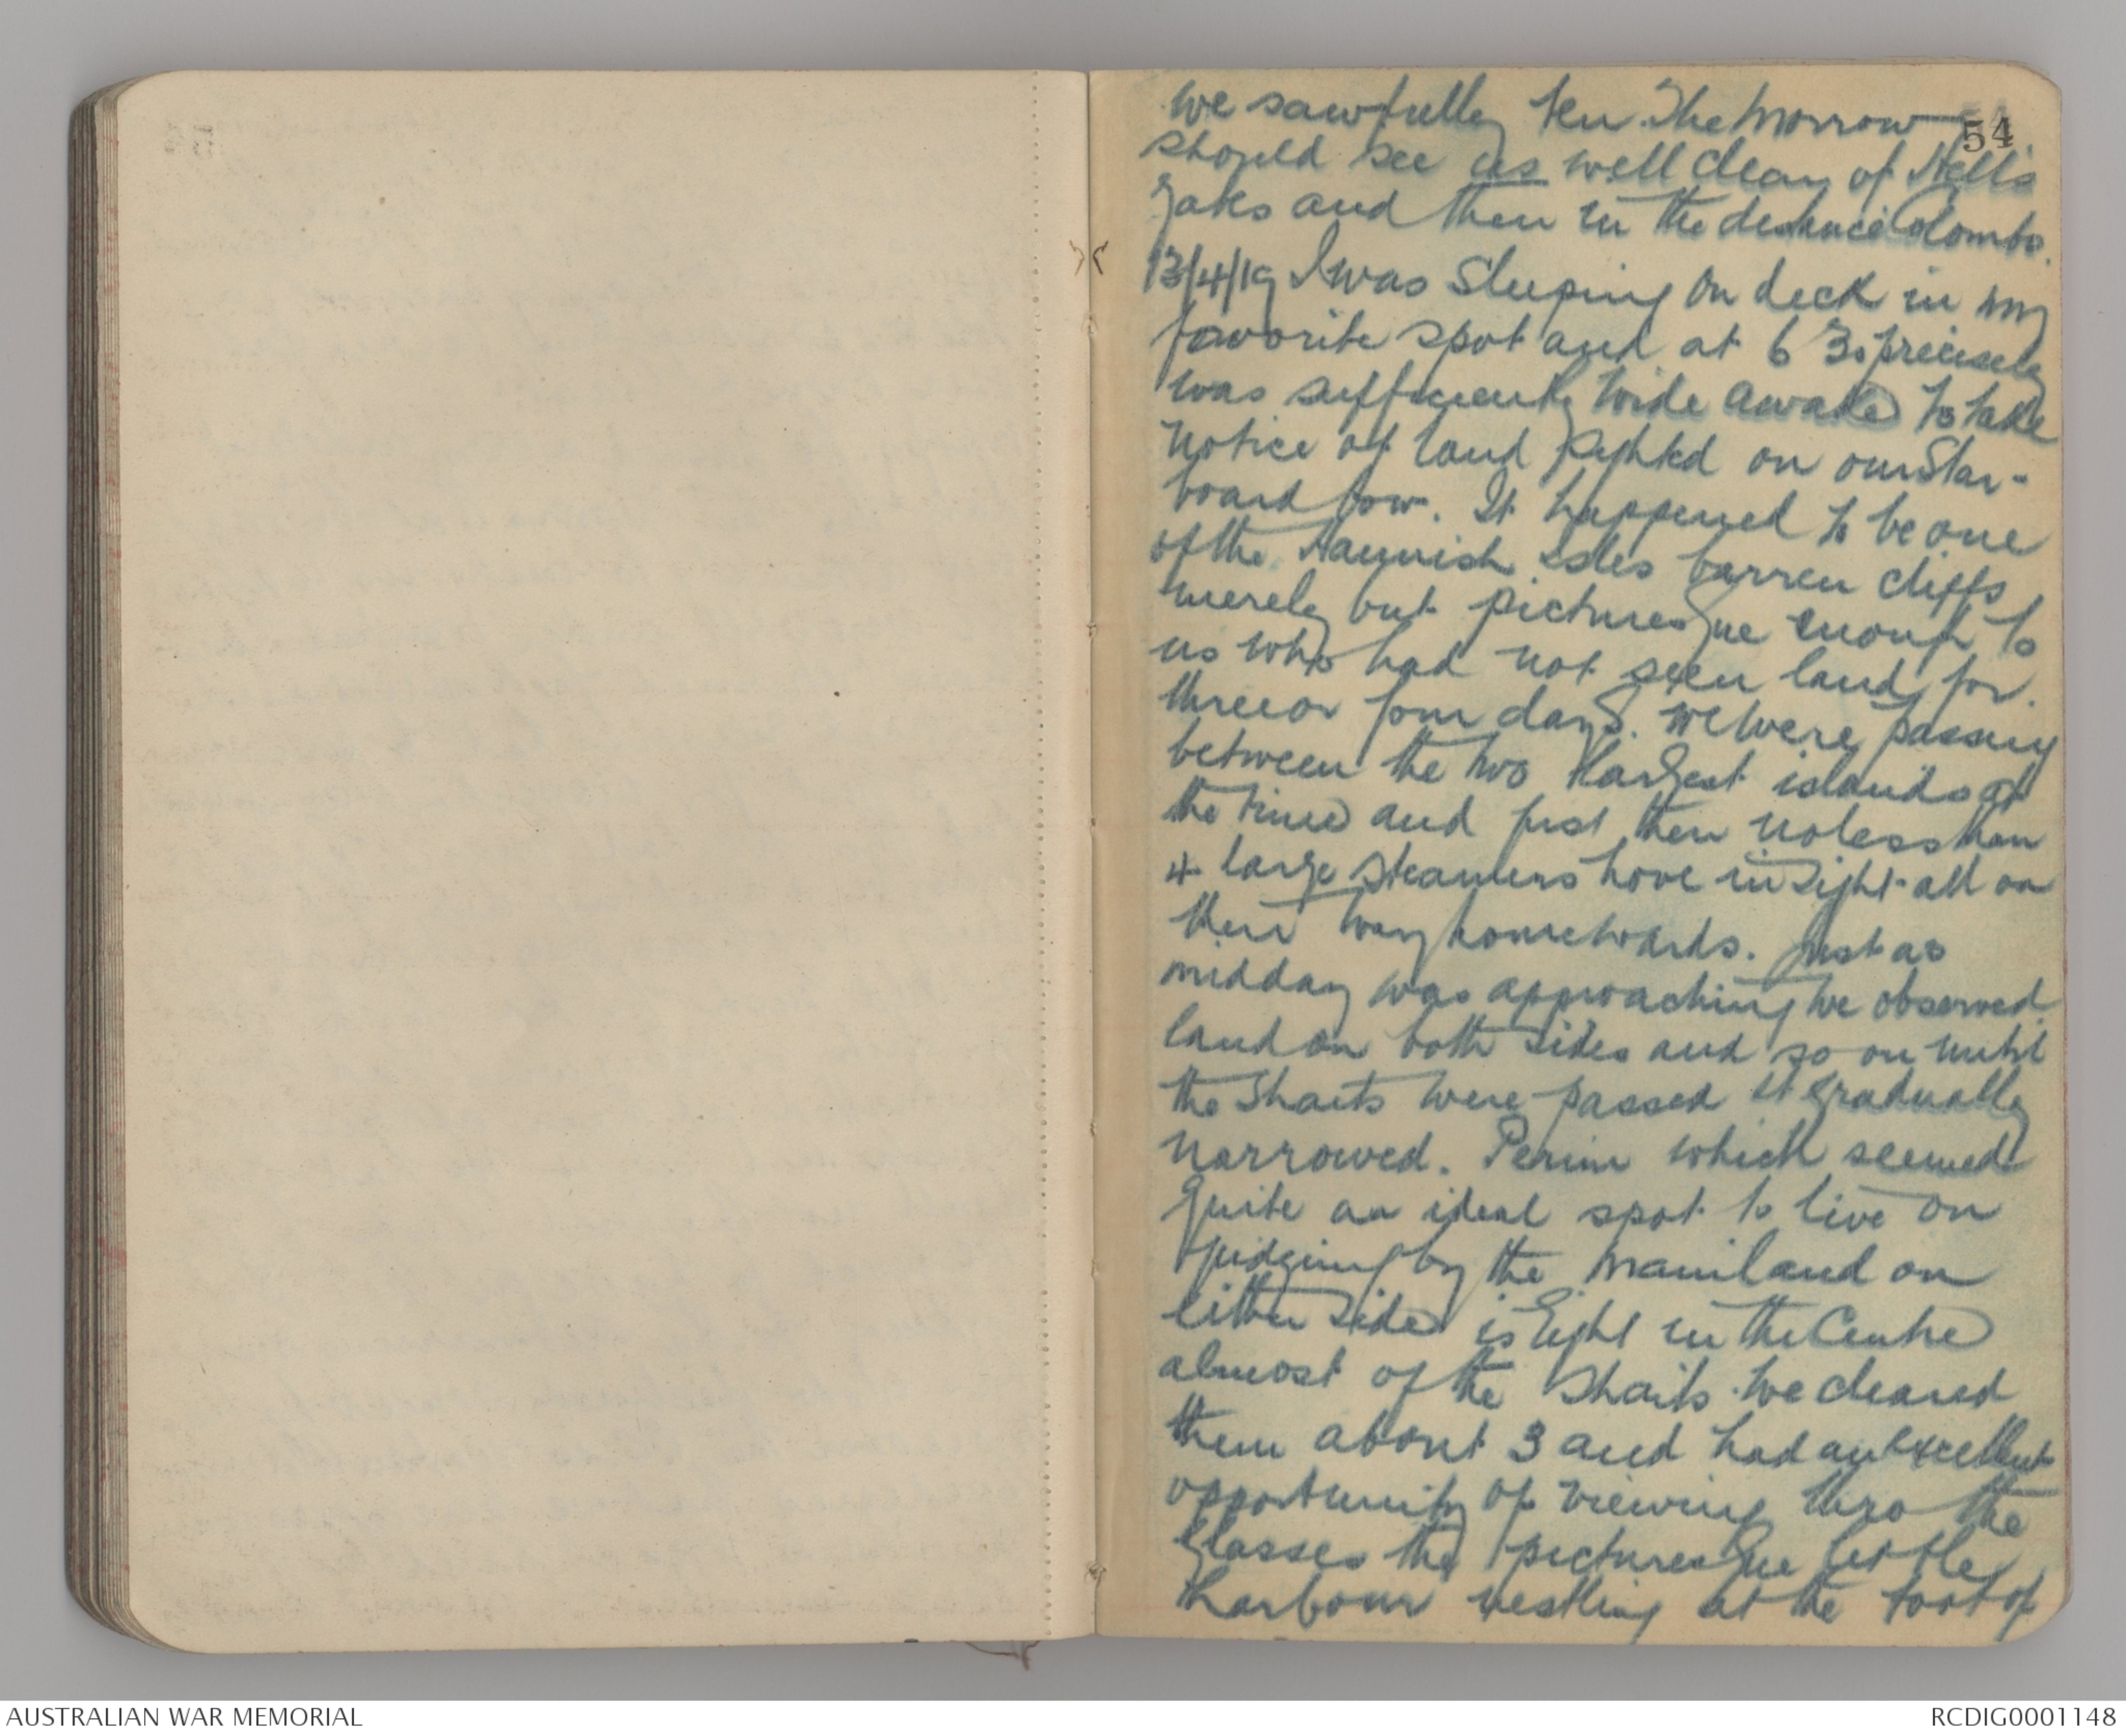 54
we saw fully ten. The morrow
should see us well clear of Hell's
Gates and then in the distance Colombo.
13/4/19 I was sleeping on deck in my
favorite spot and at 6 30 precisely
was sufficiently wide awake to take
notice of land sighted on our Star-
board bow. It happened to be one
of the Hannish Isles barren cliffs
merely but picturesque enough to
us who had not seen land for
three or four days. We were passing
between the two largest islands at
the time and just then no less than
4 large steamers hove in sight all on
their way homewards. Just as
midday was approaching we observed
land on both sides and so on until
the Straits were passed it gradually
narrowed. Perim which seemed
quite an ideal spot to live on
judging by the mainland on
either side is right in the Centre
almost of the Straits. We cleared
them about 3 and had an excellent
opportunity of viewing thro the
glasses the picturesque little
harbour nestling at the foot of
AUSTRALIAN WAR MEMORIAL
RCDIG0001148